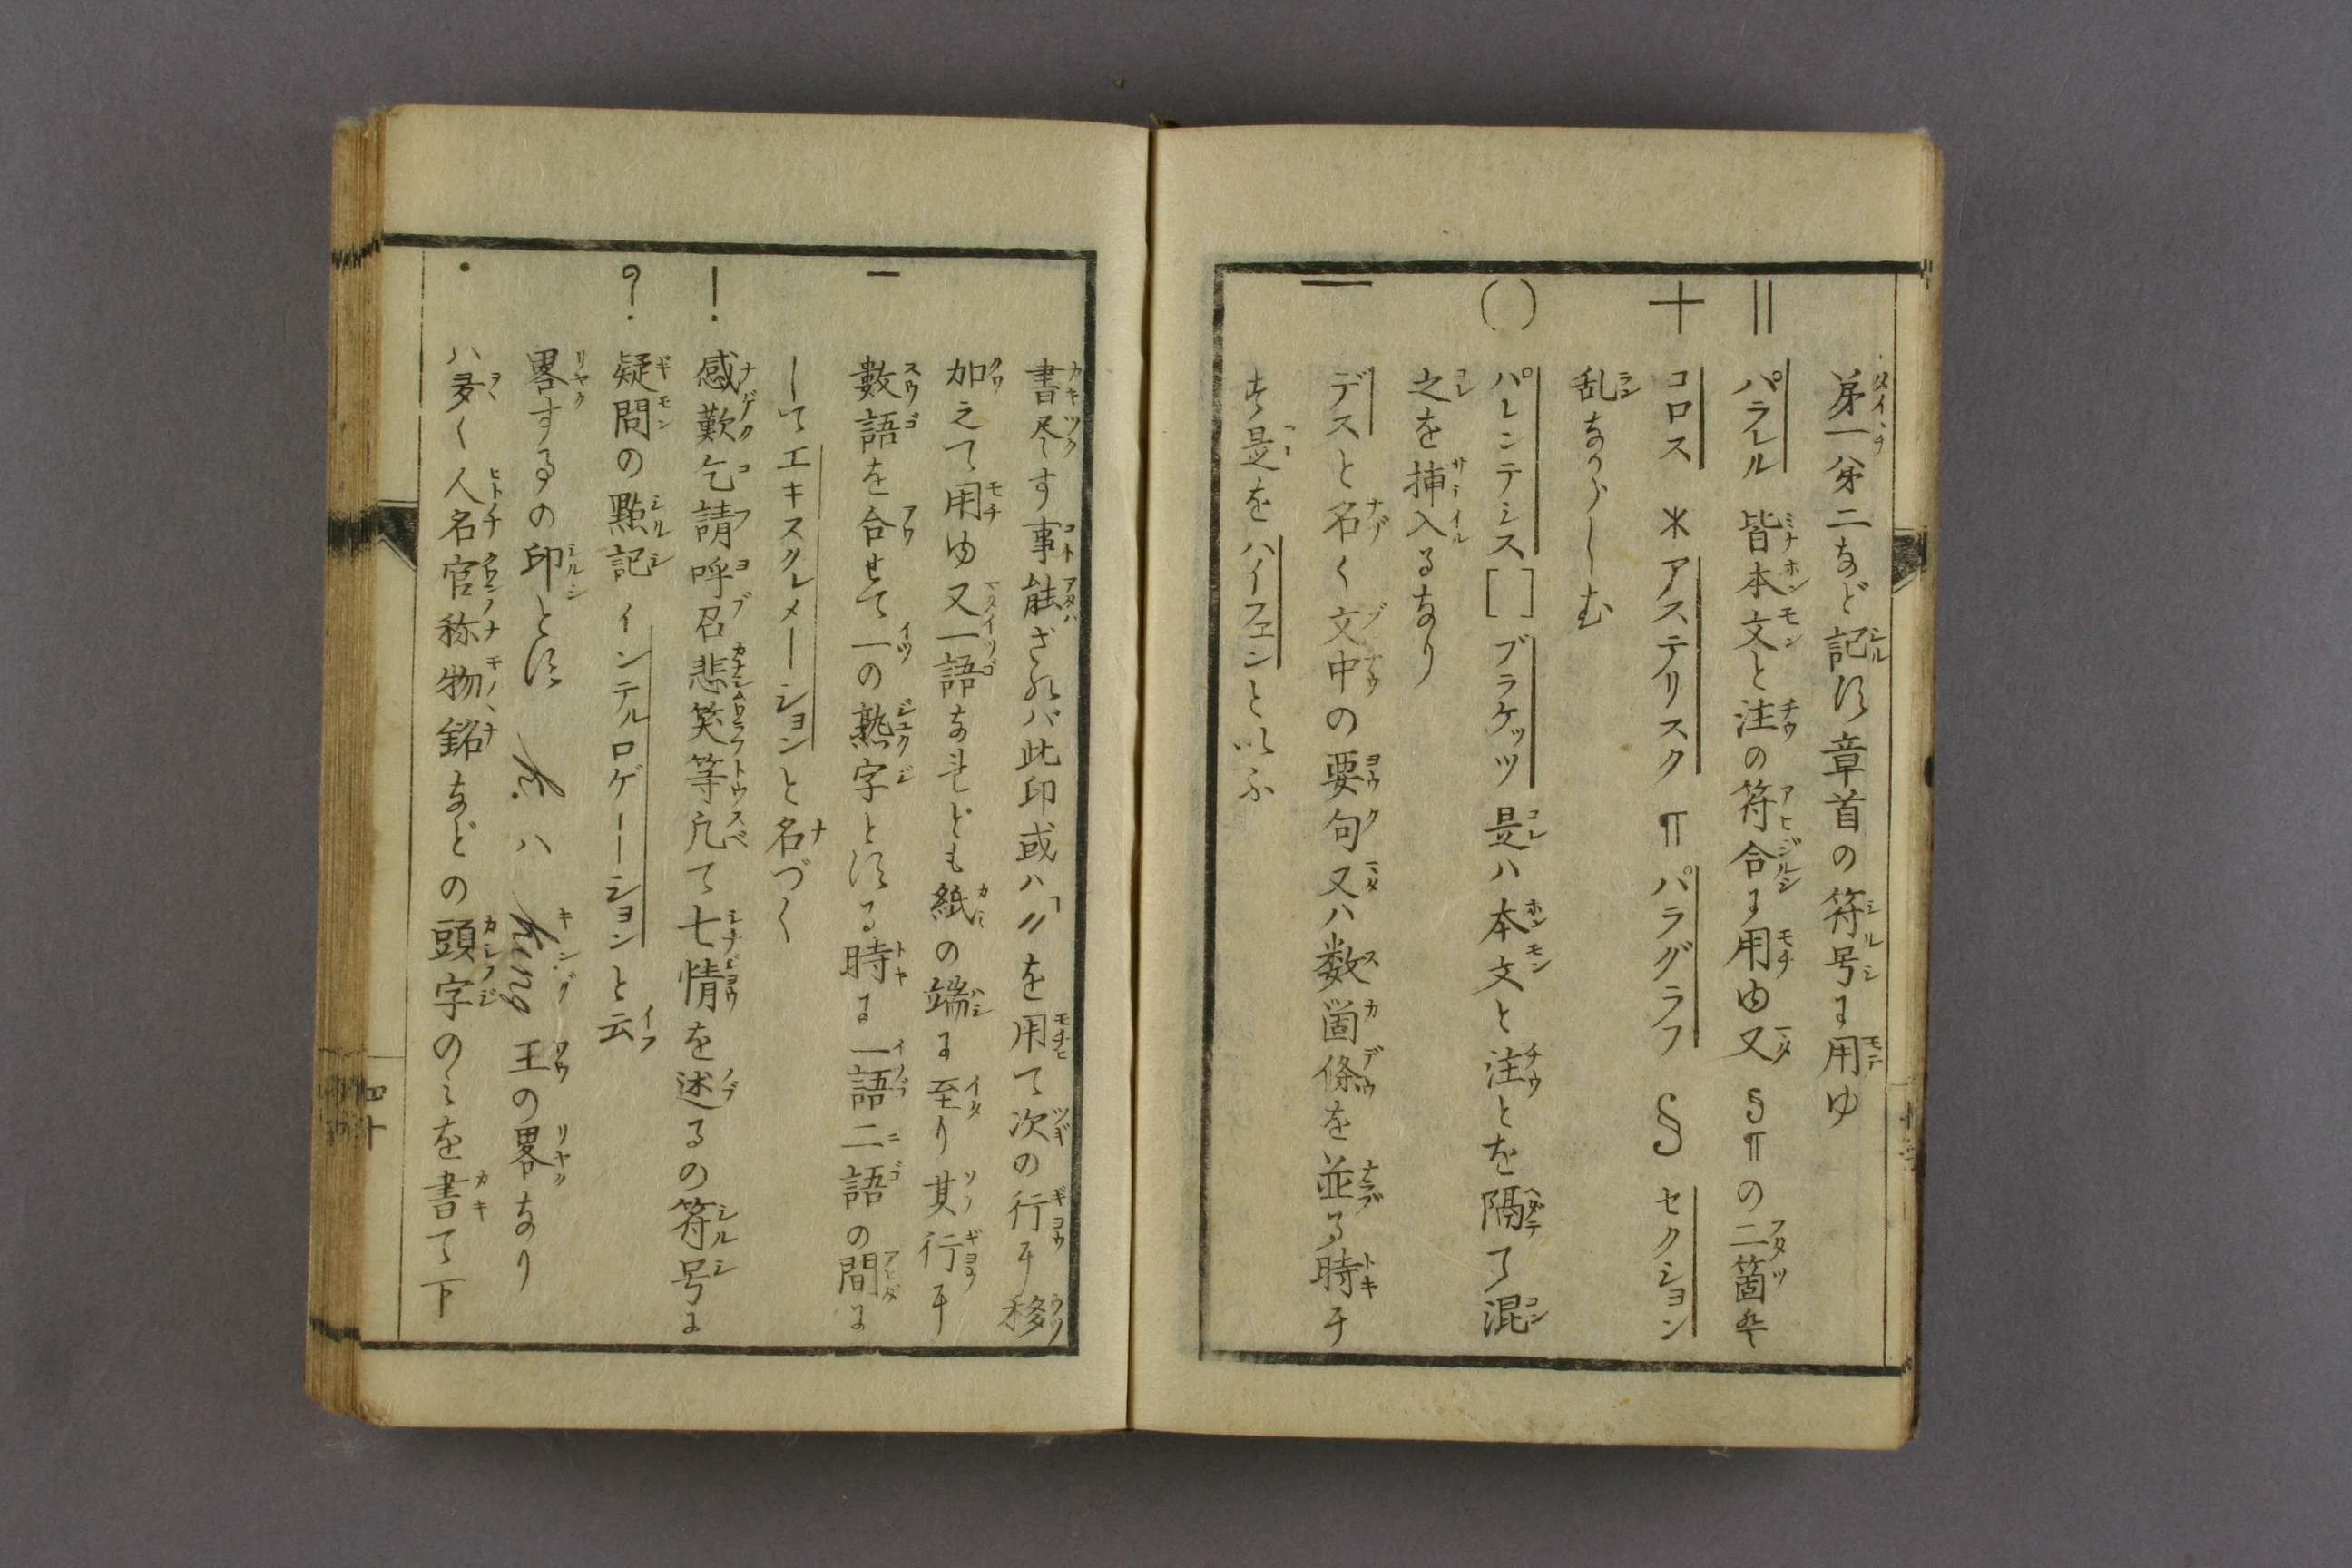 第一第二など記す章首の符号に用ゆ
‖ パラレル 皆本文と注の符合に用ゆ又§¶の二箇を
十 コロス *アステリスク ¶パラグラフ §セクション
乱なからしむ
() パレンテシス[]ブラケッツ是ハ本文と注とを隔て混
之を挿入るなり
— デスと名く文中の要句又ハ数箇條を並る時ヰ
是をハイフェンといふ
書尽す事能ざれバ此印或ハ〃を用て次の行ヰ移
加えて用ゆ又一語なれども紙の端に至り其行ヰ
- 數語を合せて一の熟字とする時に一語二語の間に
してエキスクレメーションと名づく
! 感歎乞請呼召悲笑等凡て七情を述るの符号に
? 疑問の點記インテルロゲーションと云
畧するの印とす K.ハKing王の畧なり
. ハ多く人名官称物銘などの頭字のミを書て下
四十